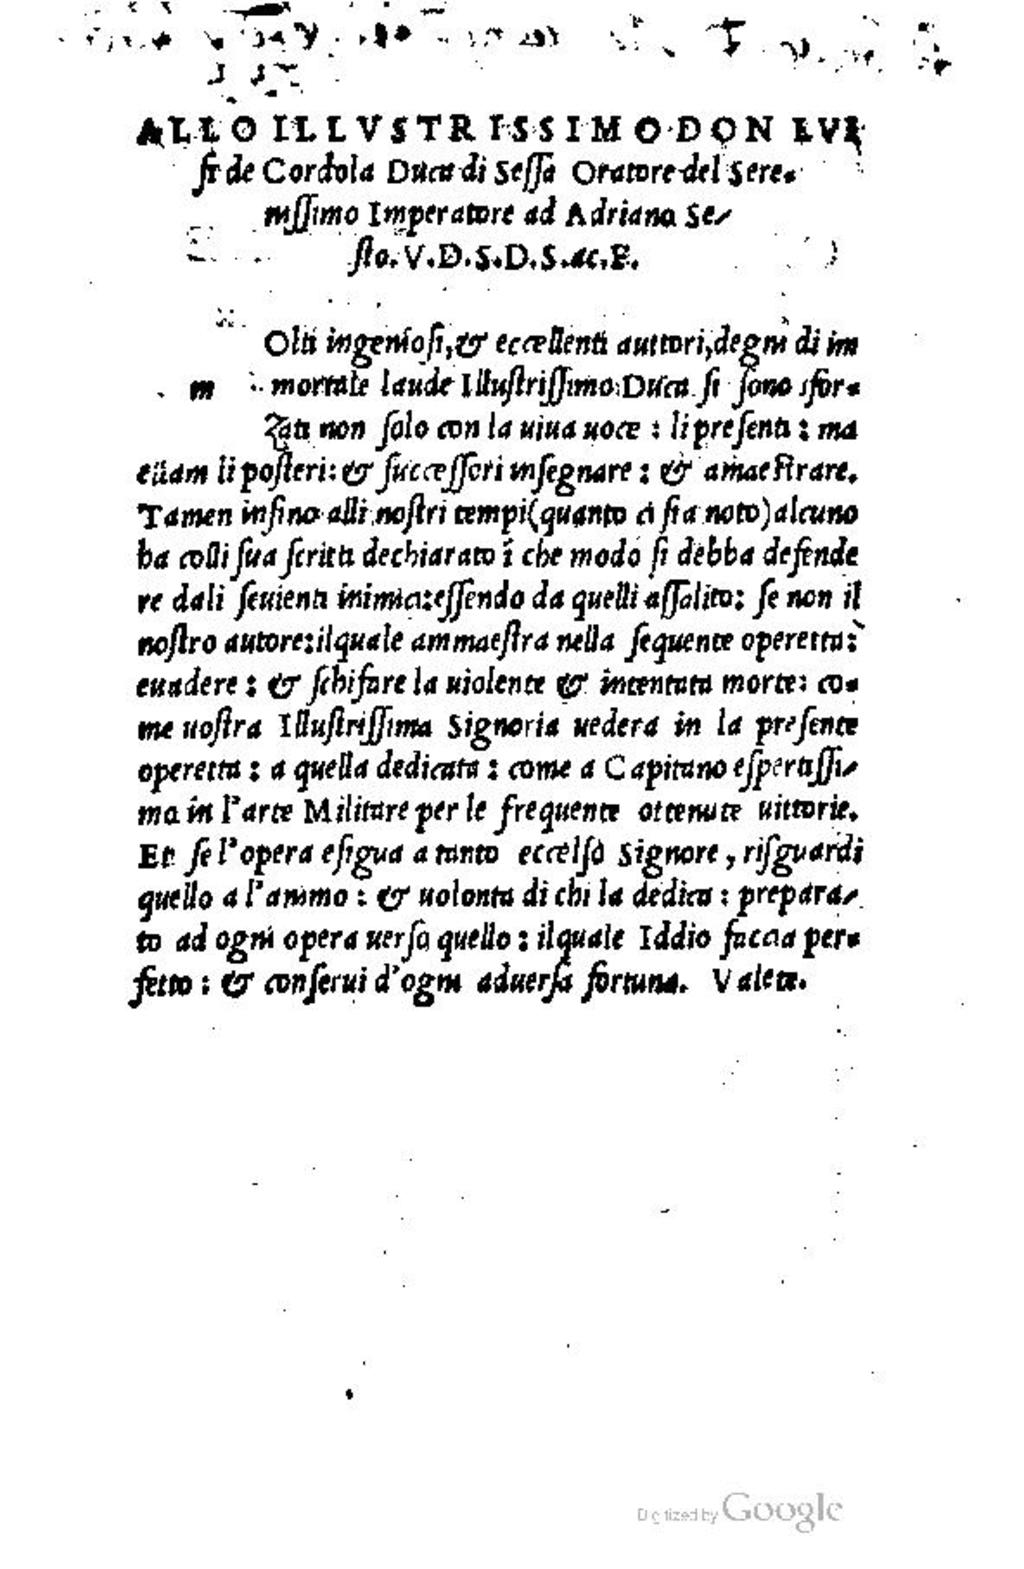 ALLO ILLVSTRISSIMO DON LVI
ſi de Cordola Duca di Seſſa Oratore del Sere-
niſſimo Imperatore ad Adriano Se-
ſto. V.D.S.D.S.ac.P.
m
Olti ingenioſi, & eccellenti auttori, degni di im
mortale laude Illuſtriſſimo Duca ſi ſono ſfor-
zati non ſolo con la uiua uoce : li preſenti : ma
etiam li poſteri: & ſucceſſori inſegnare : & amaeſtrare.
Tamen inſino alli noſtri tempi (quanto ci ſia noto) alcuno
ha colli ſua ſcritti dechiarato ĩ che modo ſi debba defende
re dali ſeuienti inimici: eſſendo da quelli aſſalito: ſe non il
noſtro autore: ilquale ammaeſtra nella ſequente operetta:
euadere : & ſchifare la uiolente & intentata morte: co-
me uoſtra Illuſtriſſima Signoria uedera in la preſente
operetta : a quella dedicata : come a Capitano eſpertiſſi-
mo in l'arte Militare per le frequente ottenute uittorie.
Et ſe l'opera eſigua a tanto eccelſo Signore, riſguardi
quello a l'animo : & uolonta di chi la dedica : prepara-
to ad ogni opera uerſo quello : ilquale Iddio faccia per-
fetto : & conſerui d'ogni aduerſa fortuna. Valete.
Digitized by Google